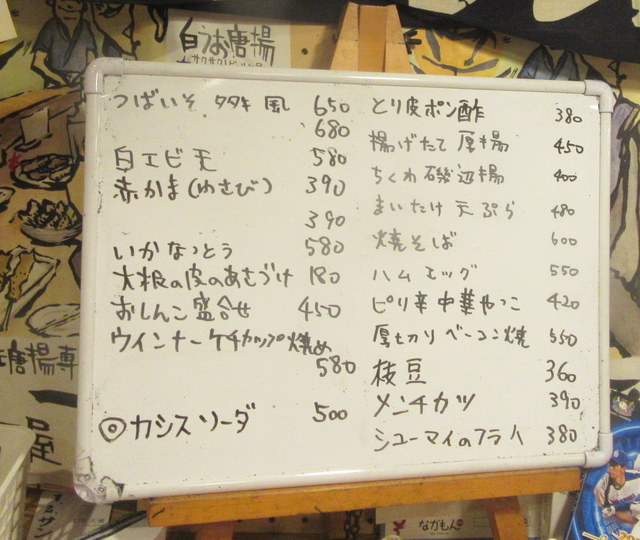 白うお唐揚
つばいそ タタキ 風 650
680
白エビ天 580
赤かま(わさび) 390
390
いかなっとう 580
大根の皮のあさづけ 180
おしんこ盛合せ 450
ウインナーケチャップ焼め
580
◎カシスソーダ 500
とり皮ポン酢 380
揚げたて厚揚 450
ちくわ磯辺揚 400
まいたけ天ぷら 480
焼そば 600
ハムエッグ 550
ピリ辛中華やっこ 420
厚切りベーコン焼 550
枝豆 360
メンチカツ 390
シューマイのフライ 380
唐揚専
屋
なかもん